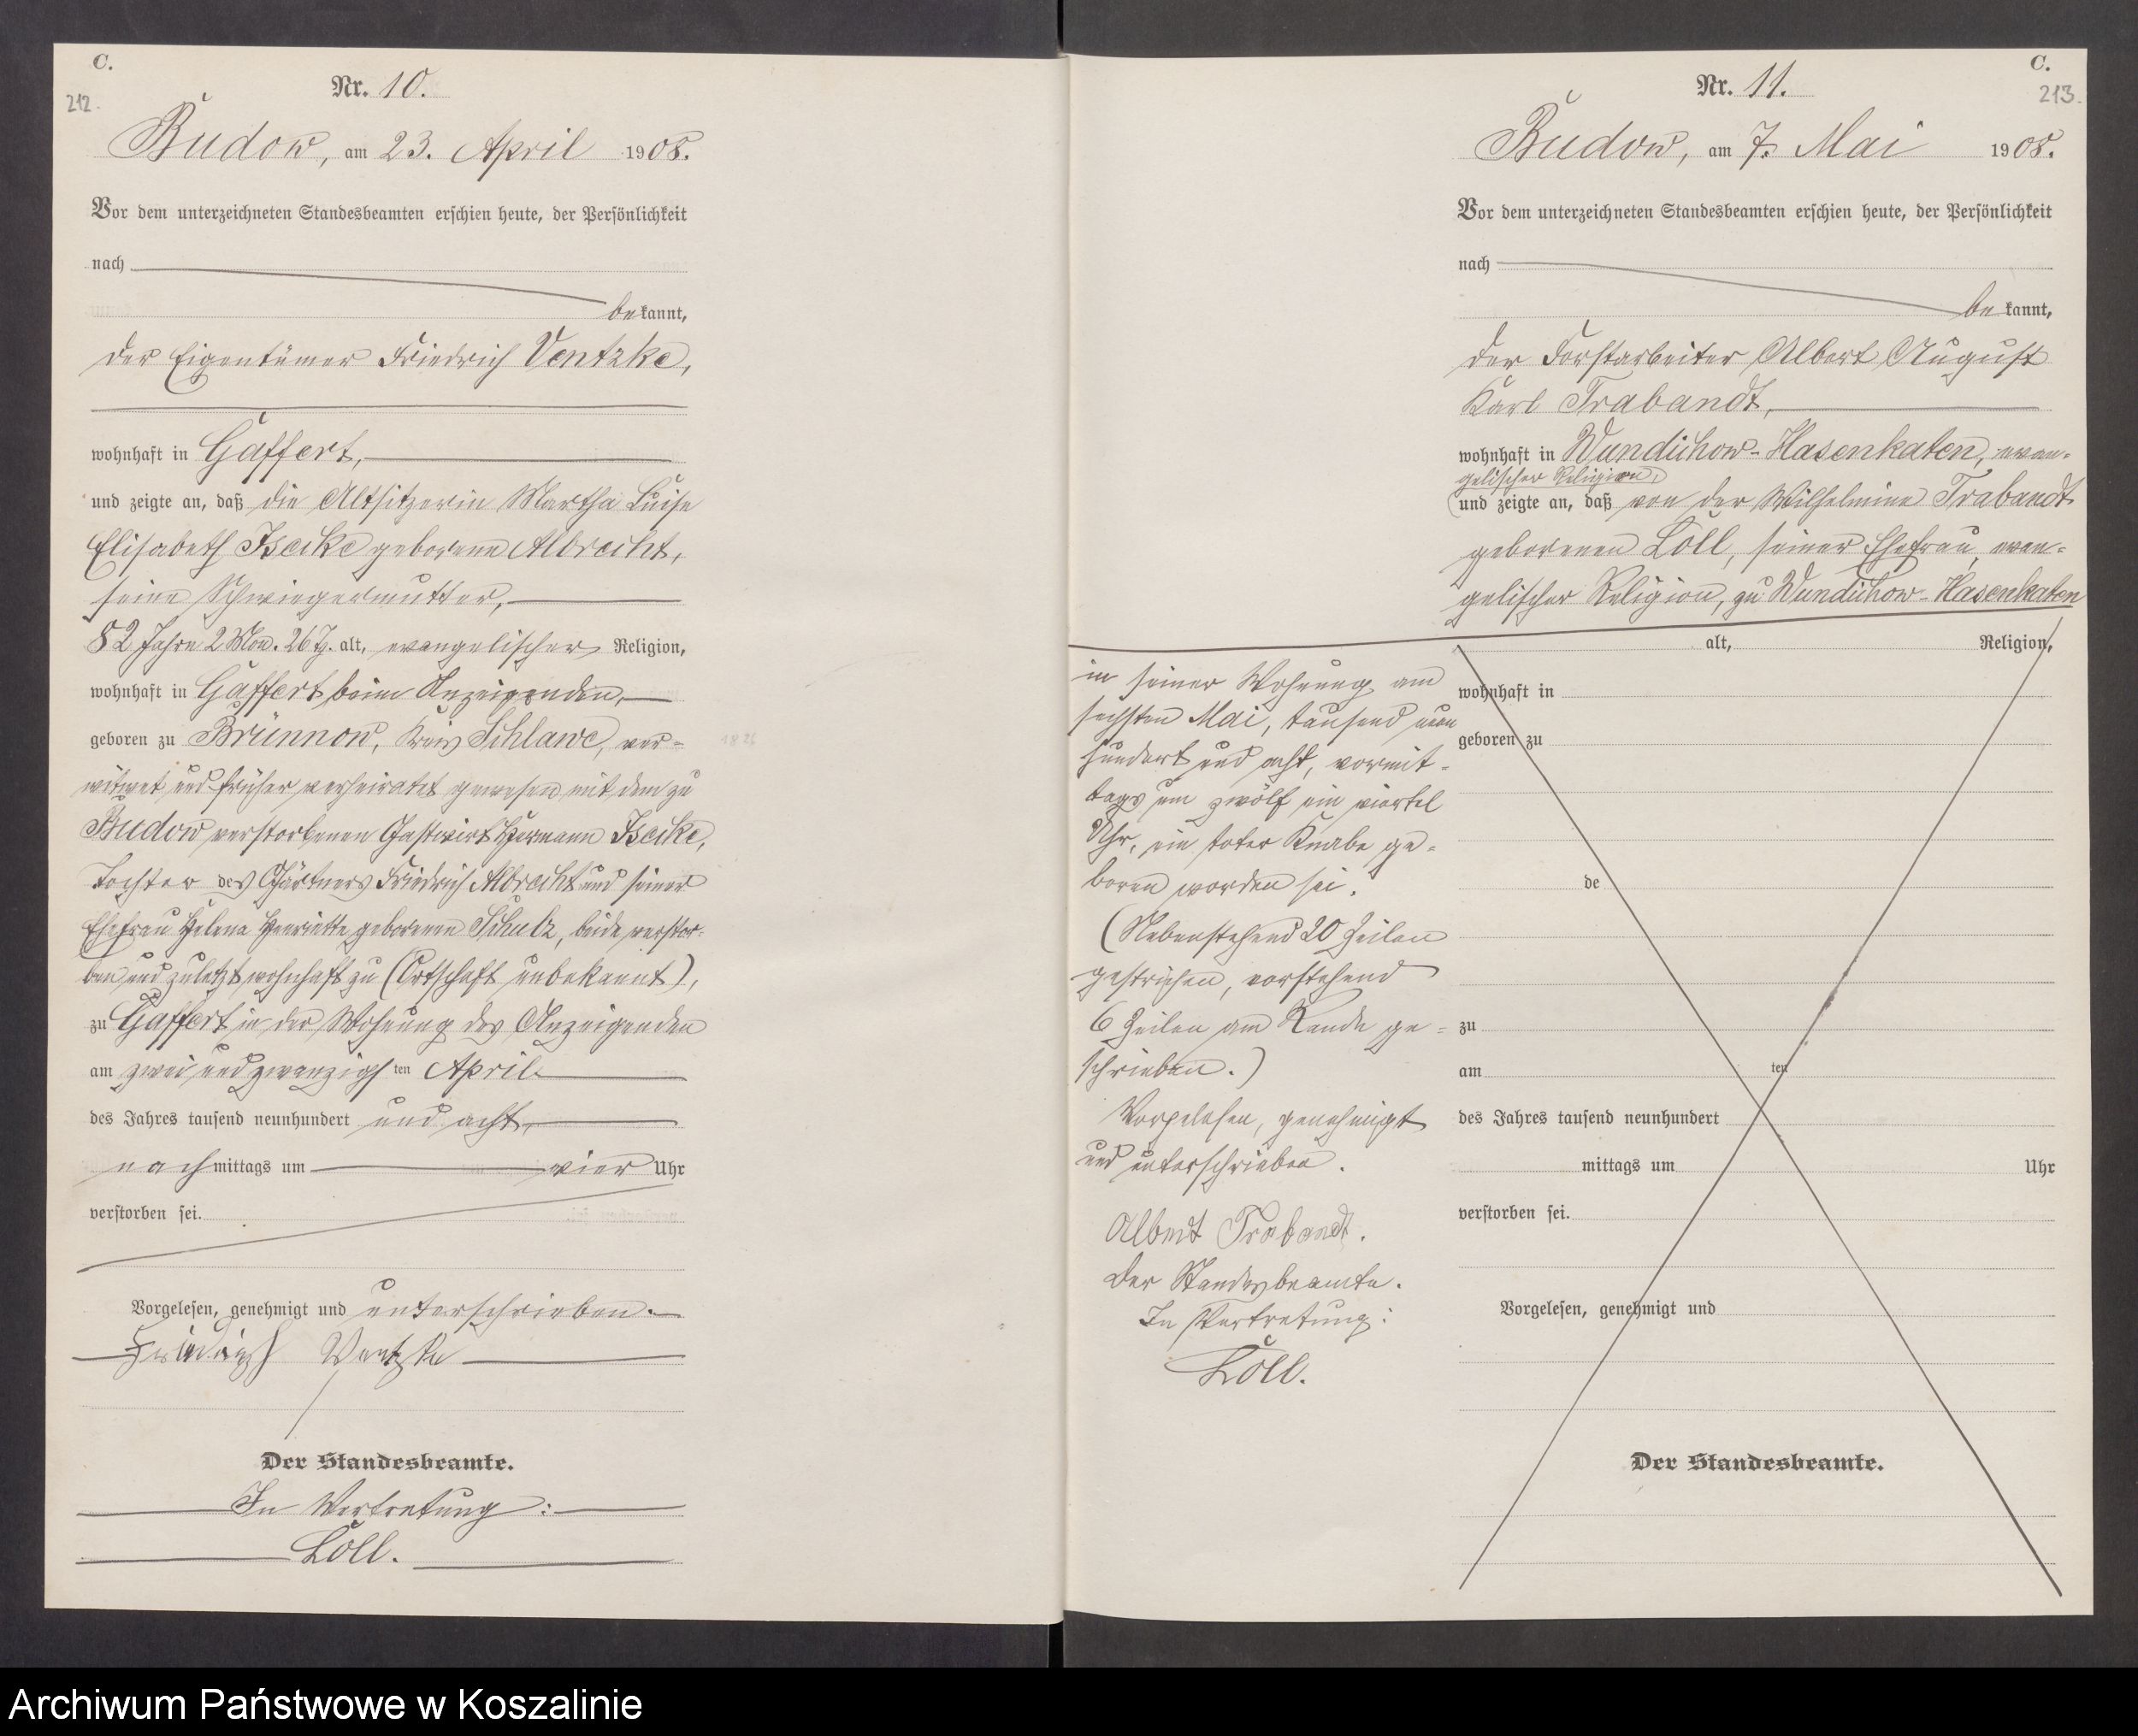 C.
212.
Nr. 10.
Budow, am 23. April 1908.
Vor dem unterzeichneten Standesbeamten erschien heute, der Persönlichkeit
nach
bekannt,
der Eigentümer Friedrich Ventzke,
wohnhaft in Gaffert,
und zeigte an, daß die Altsitzerin Martha Luise
Elisabeth Isecke geborene Albrecht,
seine Schwiegermutter,
82 Jahre 2 Mon. 26 Tg. alt, evangelischer Religion,
wohnhaft in Gaffert beim Anzeigenden,
geboren zu Brünnow, Kreis Schlawe, ver-
witwet und früher verheiratet gewesen mit dem zu
Budow verstorbenen Gastwirt Hermann Isecke,
Tochter des Gärtners Friedrich Albrecht und seiner
Ehefrau Helena Henriette geborenen Schulz, beide verstor-
ben und zuletzt wohnhaft zu (Ortschaft unbekannt),
zu Gaffert in der Wohnung des Anzeigenden
am zwei und zwanzigsten April
des Jahres tausend neunhundert und acht,
nachmittags um vier Uhr
verstorben sei.
Vorgelesen, genehmigt und unterschrieben.
Friedrich Ventzke
Der Standesbeamte.
In Vertretung:
Löll.
C.
213.
Nr. 11.
Budow, am 7. Mai 1908.
Vor dem unterzeichneten Standesbeamten erschien heute, der Persönlichkeit
nach
bekannt,
der Forstarbeiter Albert August
Karl Trabandt,
wohnhaft in Wundichow-Hasenkaten, evan-
gelischer Religion,
und zeigte an, daß von der Wilhelmine Trabandt
geborenen Löll, seiner Ehefrau, evan-
gelischer Religion, zu Wundichow-Hasenkaten
in seiner Wohnung am
sechsten Mai, tausend neun
hundert und acht, vormit-
tags um zwölf ein viertel
Uhr, ein toter Knabe ge-
boren worden sei.
(Nebenstehend 20 Zeilen
gestrichen, vorstehend
6 Zeilen am Rande ge-
schrieben.)
Vorgelesen, genehmigt
und unterschrieben.
Albert Trabandt.
Der Standesbeamte.
In Vertretung:
Löll.
alt, Religion,
wohnhaft in
geboren zu
de
zu
am ten
des Jahres tausend neunhundert
mittags um Uhr
verstorben sei.
Vorgelesen, genehmigt und
Der Standesbeamte.
Archiwum Państwowe w Koszalinie